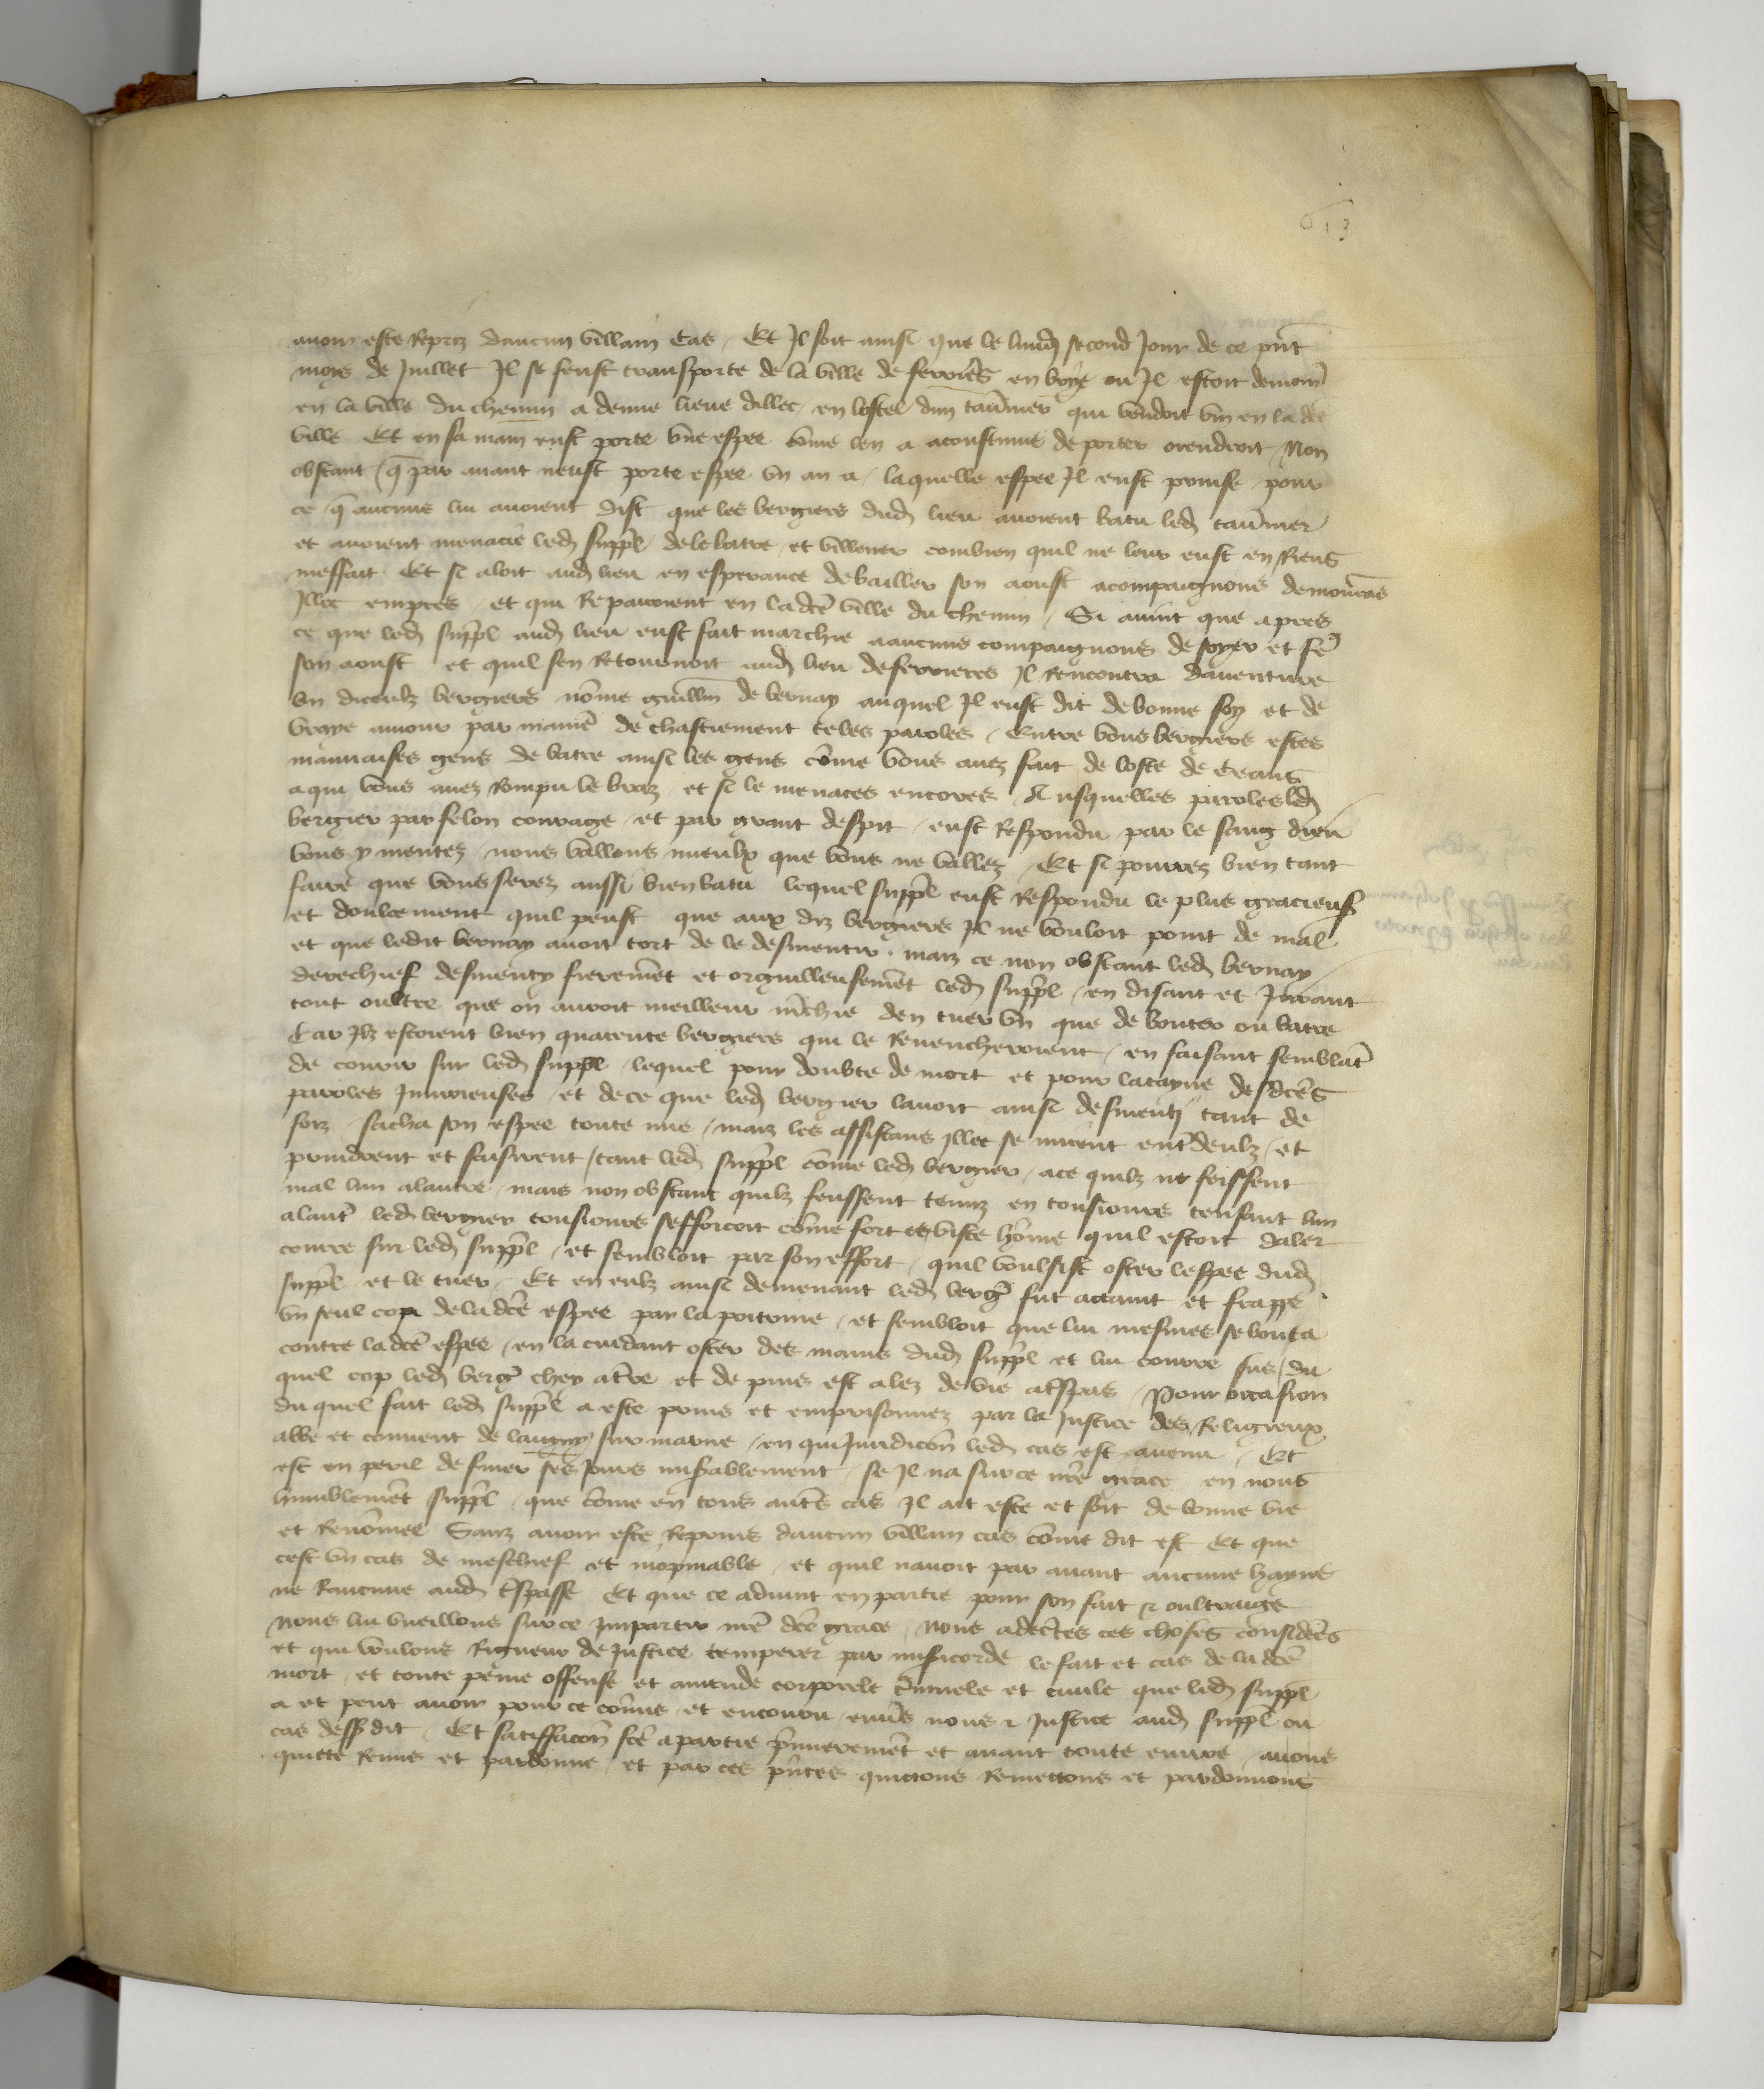 avoir este repriz daucun villain cas / Et Jl soit ainsi que le lundj second Jour de ce pñt
mois de Juillet Jl se feust transporte de la ville de ferrieres en brye ou Jl estoit demourñ
en la ville du chemin a demie lieue dillec en lostel dun tav̄nier qui vendoit vin en la dcē
ville Et en sa main eust porte vne espee cōme len a acoustume de porter orendroit / Non
obstant q̄ par avant neust porte espee vn an a / laquelle espee Jl eust prinse pour
ce q̄ aucuns lui avoient dist que les bergiers dud lieu avoient batu led tav̄nier
et avoient menacie led suppl̄ de le batre et villener combien quil ne leur eust en Riens
meffait Et si aloit aud lieu en esperance de bailler son aoust a compaignons demourās
Jllec empres et qui Repairoient en la dcē ville du chemin / Si avint que apres
ce que led suppl̄ aud lieu eust fait marchie a aucuns compaignons de soyer et fē
son aoust et quil sen Retournoit aud lieu de ferrieres Jl Rencontra daventure
vn diceulz bergiers nōme guillm̄ de bernay auquel Jl eust dit de bonne foy et de
vraye amour par manie᷑ de chastiement teles paroles / Entre vous bergiers estes
mauvaises gens de batre ainsi les gens cōme vous avez fait de loste de ceans
a qui vous avez Rompu le braz et si le menaces encores / Ausquelles paroles led
bergier par felon courage et par grant despit eust Respondu par le sang dieu
vous y mentez nous vallons mieulx que vous ne vallez / Et si pourrez bien tant
faire que vous serez aussi bien batu lequel suppl̄ eust Respondu le plus gracieus
et doulcement quil peust que aux diz bergiers Jl ne vouloit point de mal
et que ledit bernay avoit tort de le desmentir . maiz ce non obstant led bernay
derechief desmenty fieremēt et orguilleusemēt led suppl̄ / en disant et Jurant
tout oultre que on auroit meilleur m̄chie den tuer vn que de bouter ou batre
Car Jlz estoient bien quarente bergiers qui le Revencheroient / en faisant semblāt
de courir sur led suppl̄ lequel pour doubte de mort et pour latayne desdcēs
paroles Jniurieuses et de ce que led bergier lavoit ainsi desmenti tant de
foiz sacha son espee toute nue / maiz les assistans Jllec se mirent ent̄ deulz et
prindrent et saisirent tant led suppl̄ cōme led bergier / ace quilz ne feissent
mal lun a lautre mais non obstant quilz feussent tenuz en tousiours tensant lun
a laut̄ led bergier tousiours sefforcoit cōme fort et viste hōme quil estoit daler
courre sur led suppl̄ / et sembloit par son effort quil voulsist oster lespee dud
suppl̄ et le tuer / Et en eulz ainsi demenant led berḡ fut attaint et frappe
vn seul cop de la dcē espee par la poitrine et sembloit que lui mesmes se bouta
contre la dcē espee / en la cuidant oster des mains dud suppl̄ et lui courre sus / du
quel cop led berḡ chey a t̄re et depuis est alez de vie a t̄spas / Pour occasion
du quel fait led suppl̄ a este prins et emprisonnez par la Justice des Religieux
abbe et couvent de laigny sur marne / en qui Juridicōn led cas est avenu / Et
est en peril de finer ses Jours mis̄ablement / se Jl na sur ce nrē grace en nous
humblemēt suppl̄ que cōme en tous aut̄s cas Jl ait este et soit de bonne vie
et Renōmee Sanz avoir este Reprins daucun villain cas cōme dit est Et que
cest vn cas de meschief et inopinable et quil navoit par avant aucune hayne
ne Rancune aud t̄spasse Et que ce advint en partie pour son fait et oultraige
nous lui vueillons sur ce Jmpartir nrē dcē grace / Nous adecertes ces choses considēēs
et qui voulons Rigueur de Justice temperer par mis̄icorde le fait et cas de la dcē
mort et toute peine offense et amende corporele c̄minele et civile que led suppl̄
a et peut avoir pour ce cōmis et encouru env̄s nous et Justice aud suppl̄ ou
cas dess̄ dit / Et satiffacōn fcē a partie p̄mieremēt et avant toute euvre / avons
quitte Remis et pardonne / et par ces p̄ntes quictons Remettons et pardonnons